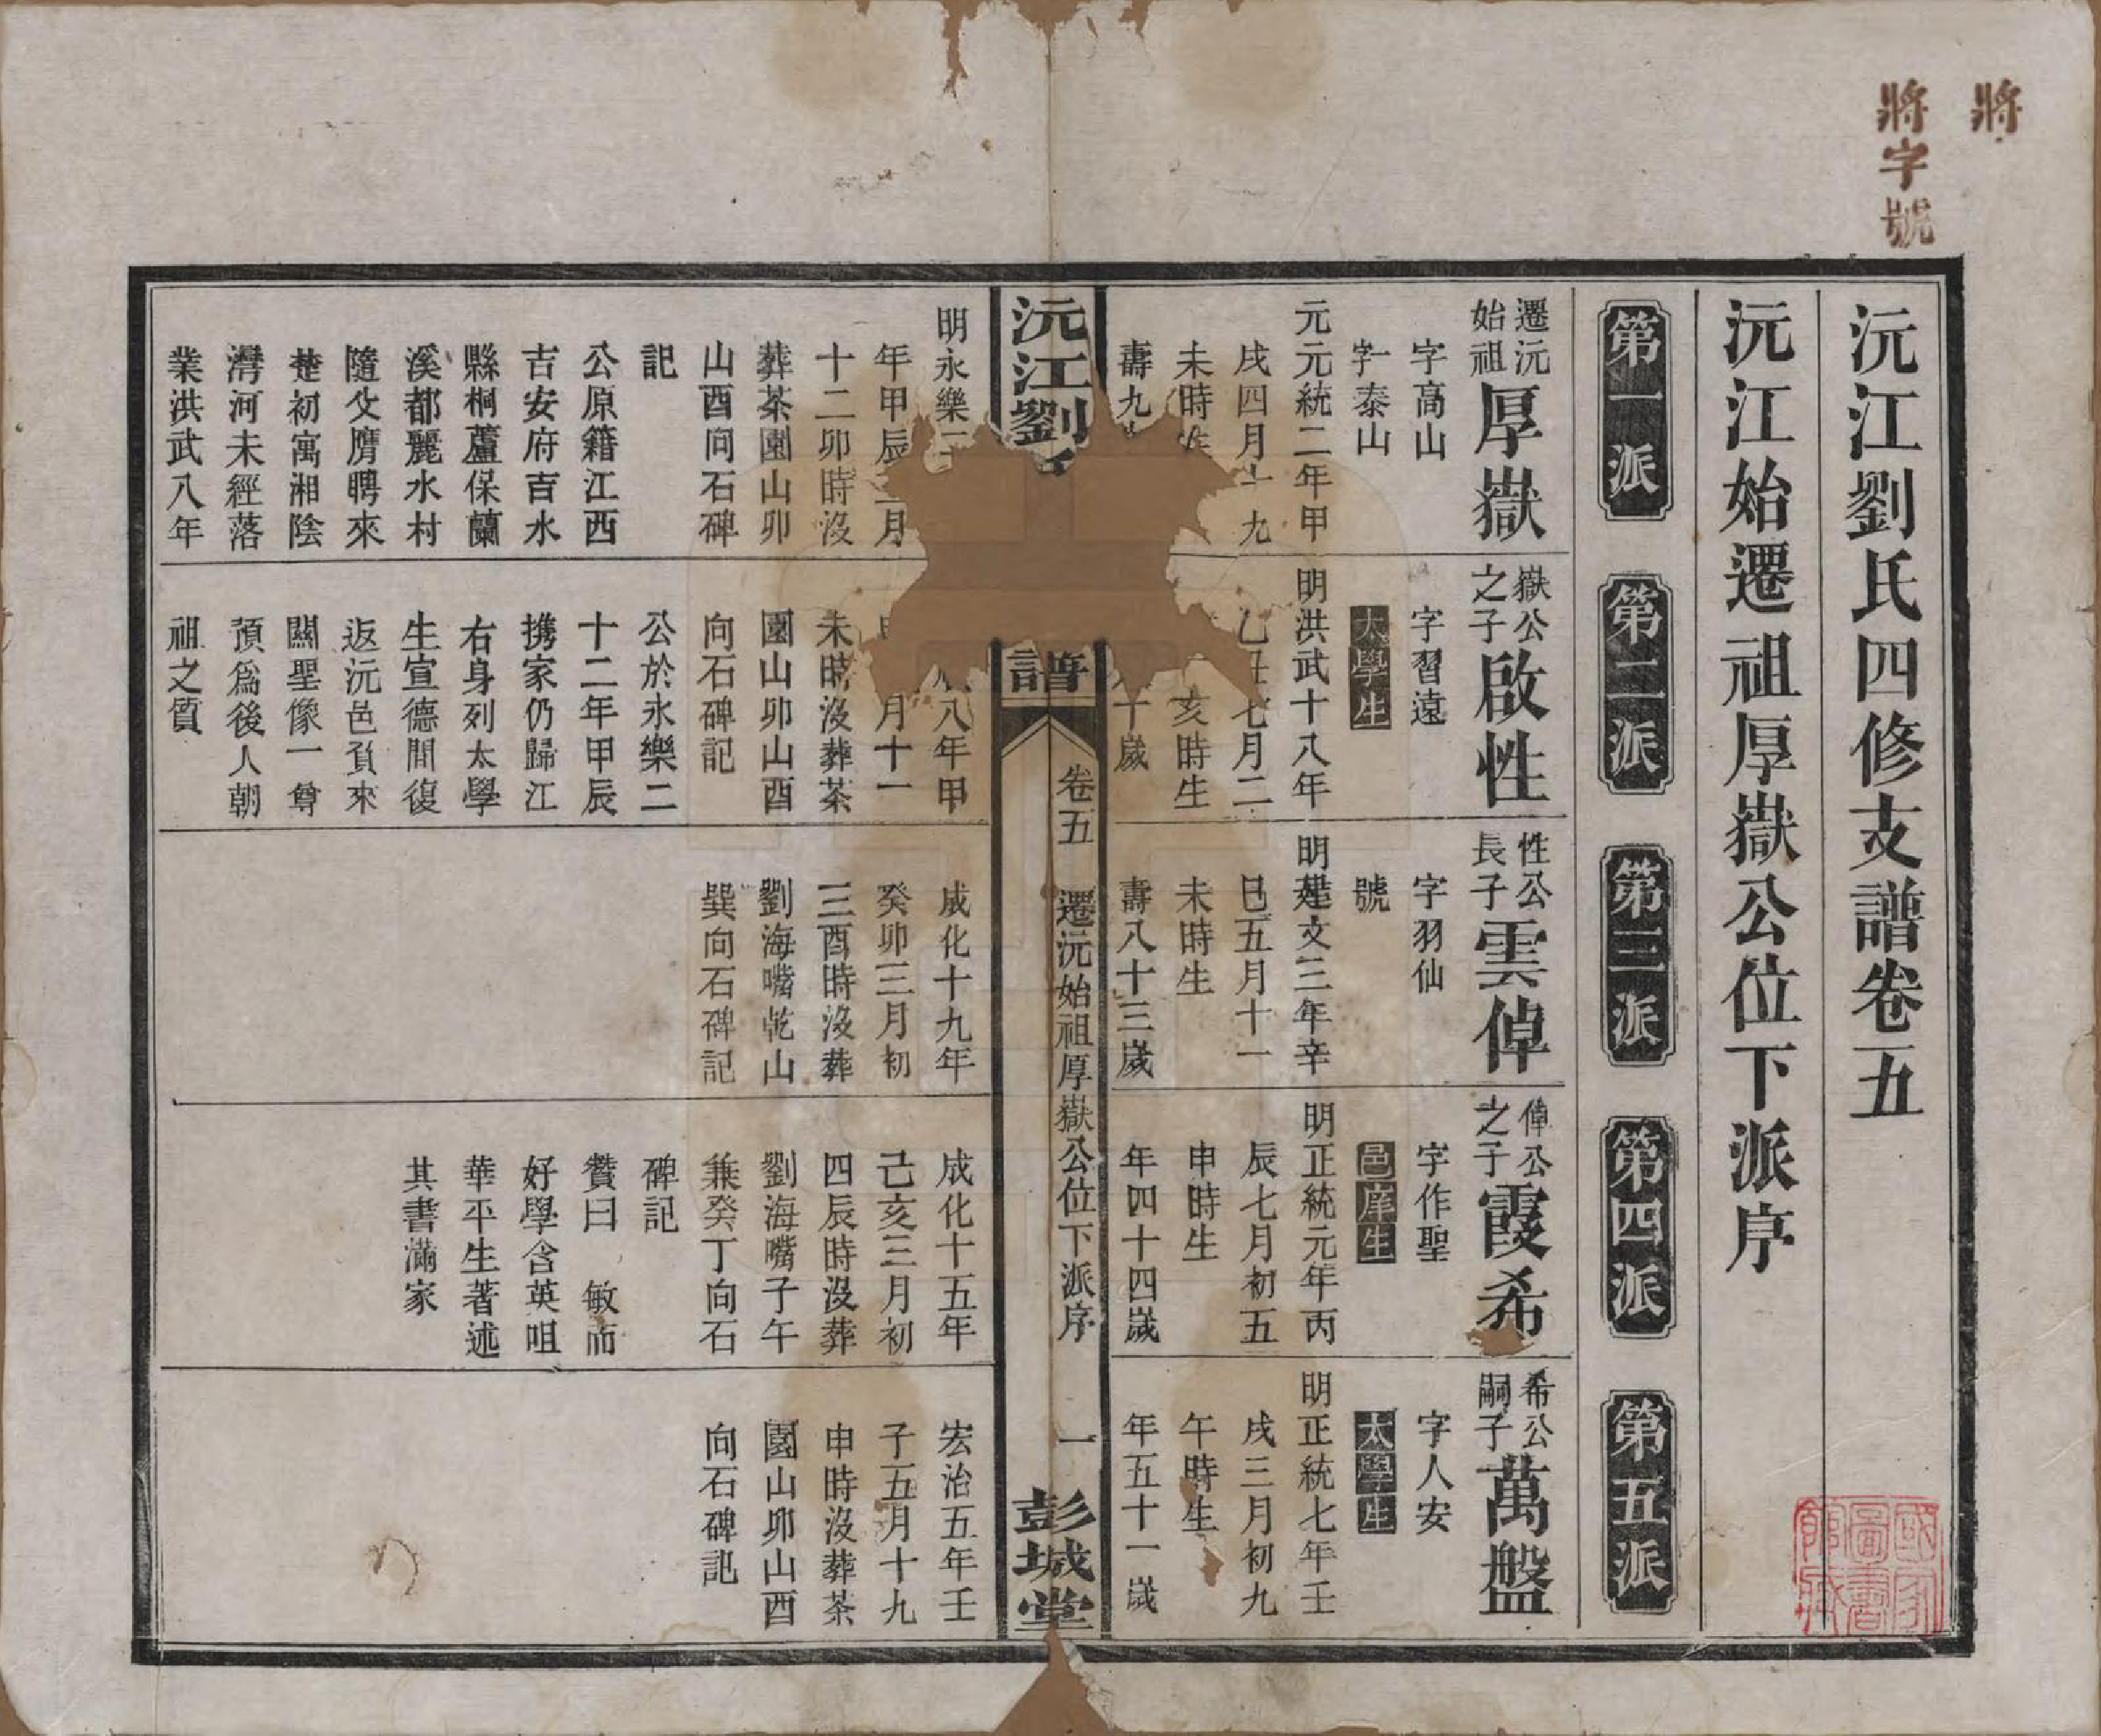 將
將字號
沅江劉氏四修支譜卷五
沅江始遷祖厚嶽公位下派序
第一派
第二派
第三派
第四派
第五派
遷沅
始祖
厚嶽
字高山
字泰山
元元統二年甲
戌四月十九
未時
壽九
嶽公
之子
啟性
字習遠
太學生
明洪武十八年
乙丑七月二
亥時生
十歲
性公
長子
雲倬
字羽仙
號
明建文三年辛
巳五月十一
未時生
壽八十三歲
倬公
之子
霞希
字作聖
邑庠生
明正統元年丙
辰七月初五
申時生
年四十四歲
希公
嗣子
萬盤
字人安
太學生
明正統七年壬
戌三月初九
午時生
年五十一歲
沅江劉
譜
卷五
遷沅始祖厚嶽公位下派序
一
彭城堂
明永樂二
年甲辰二月
十二卯時沒
葬茶園山卯
山酉向石碑
記
公原籍江西
吉安府吉水
縣桐蘆保蘭
溪都麗水村
隨父膺聘來
楚初寓湘陰
灣河未經落
業洪武八年
八年甲
月十一
未時沒葬茶
園山卯山酉
向石碑記
公於永樂二
十二年甲辰
携家仍歸江
右身列太學
生宣德間復
返沅邑負來
關聖像一尊
預為後人朝
祖之質
成化十九年
癸卯三月初
三酉時沒葬
劉海嘴乾山
巽向石碑記
成化十五年
己亥三月初
四辰時沒葬
劉海嘴子午
兼癸丁向石
碑記
贊曰 敏而
好學含英咀
華平生著述
其書滿家
宏治五年壬
子五月十九
申時沒葬茶
園山卯山酉
向石碑記
國家圖書館藏